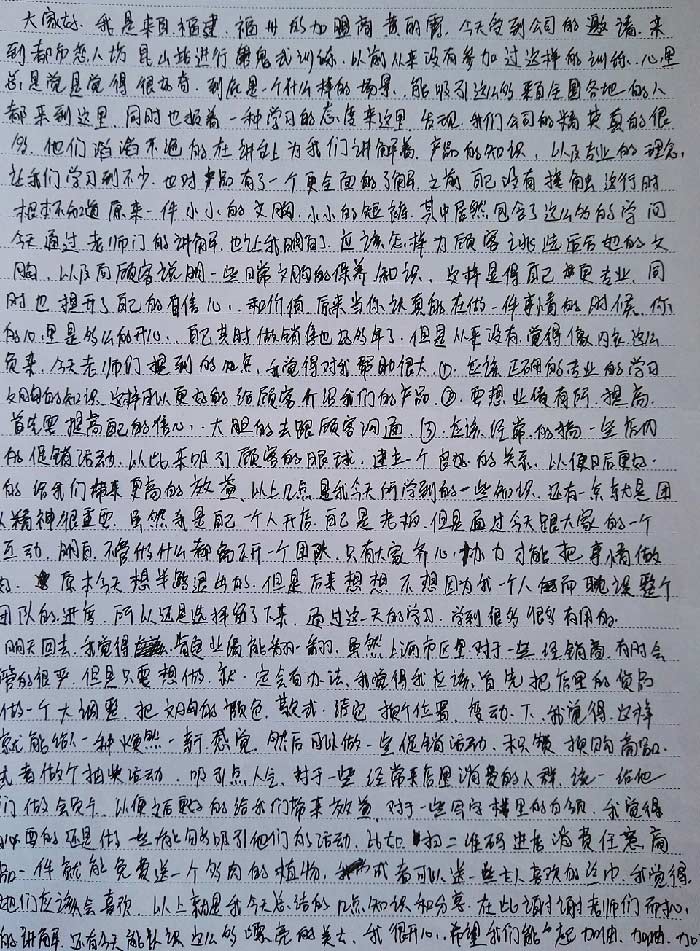 大家好,我是来自福建,福州的加盟商黄的霄,今天受到公司的邀请,来
到都市恋人坊昆山站进行魔鬼式训练,以前从来没有参加过这样的训练,心里
总是觉得很好奇,到底是一个什么样的场景,能吸引这么多来自全国各地的人
都来到这里,同时也抱着一种学习的态度来这里,发现我们公司的精英真的很
多,他们滔滔不绝的在讲台上为我们讲解着,产品的知识,以及专业的理念,
让我们学习到不少,也对产品有了一个更全面的了解,之前自己没有接触这行时
根本不知道原来一件小小的文胸,小小的短裤,其中居然包含了这么多的学问
今天通过老师们的讲解,也让我明白,应该怎样为顾客挑选适合她的文
胸,以及向顾客说明一些日常文胸的保养知识,这样显得自己更专业,同
时也提升了自己的自信心,和价值,原来当你认真的在做一件事情的时候,你
的心里是多么的开心,自己其时做销售也好多年了,但是从来没有觉得像现在这么
负责,今天老师们提到的几点,我觉得对我帮助很大,①,应该正确的专业的学习
文胸的知识,这样可以更好的给顾客介绍我们的产品,②,要想业绩有所提高,
首先要提高自己的信心,大胆的去跟顾客沟通,③,应该经常的搞一些店内
的促销活动,以此来吸引顾客的眼球,建立一个良好的关系,以便日后更好
的给我们带来更高的效益,以上几点是我今天所学到的一些知识,还有一点就是团
队精神很重要,虽然我是自己一个人开店,自己是老板,但是通过今天跟大家的一个
互动,明白,不管做什么都离不开一个团队,只有大家齐心,协力才能把事情做
好,原本今天想半路退出的,但是后来想想,不想因为我一个人的而耽误整个
团队的进度,所以还是选择留了下来,通过这一天的学习,学到很多很多有用的,
明天回去,我觉得肯定业绩能翻一翻,虽然上海市区里对于一些经销商,有时会
管的很严,但是只要想做,就一定会有办法,我觉得我应该,首先把店里的货品
做一个大调整,把文胸的颜色,款式,搭配,换个位置,变动一下,我觉得,这样
就能给人一种焕然一新感觉,然后可以做一定促销活动,积极换购商品,
或者做个抽奖活动,吸引点人气,对于一些经常来店里消费的人群,统一给他
们做会员卡,以便之后更好的给我们带来效益,对于一些写字楼里的白领,我觉得
必要的还是做一些能够吸引他们的活动,比如扫二维码进店消费任意商
品一件就能免费送一个多肉的植物,或者可以送一些女人喜欢的丝巾,我觉得,
她们应该会喜欢,以上就是我今天总结的几点知识和分享,在此谢谢老师们而北
的讲解,还有今天能认识这么多漂亮的美女,我很开心,希望我们能一起加油,加油,加